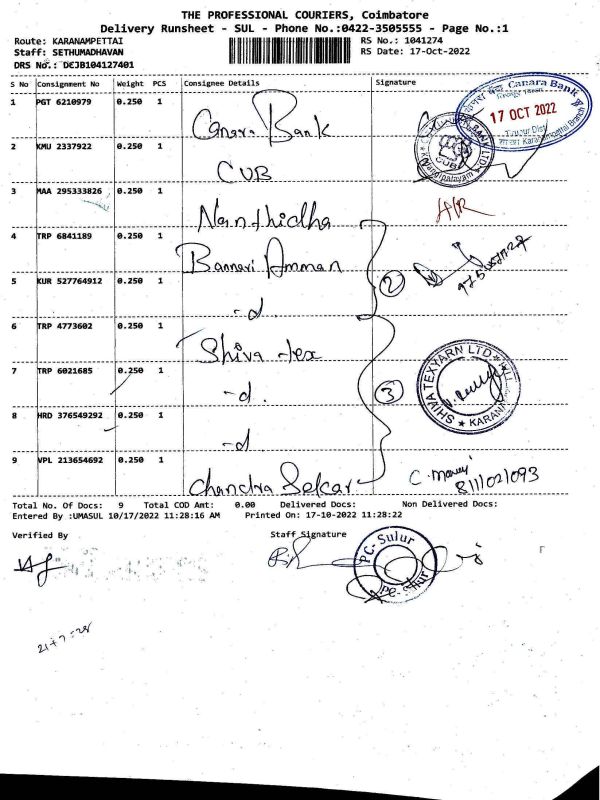 THE PROFESSIONAL COURIERS, Coimbatore
Delivery Runsheet - SUL - Phone No.:0422-3505555 - Page No.:1
Route: KARANAMPETTAI
RS No.: 1041274
Staff: SETHUMADHAVAN
RS Date: 17-Oct-2022
DRS No.: DEJB104127401
S No Consignment No Weight PCS Consignee Details Signature
1 PGT 6210979 0.250 1 Canara Bank
Canara Bank
17 OCT 2022
2 KMU 2337922 0.250 1 CUB
CUB
3 MAA 295333826 0.250 1 Nandhidha
4 TRP 6841189 0.250 1 Bannari Amman
5 KUR 527764912 0.250 1 -d.
2
6 TRP 4773602 0.250 1 Shiva tex
7 TRP 6021685 0.250 1 -d.
8 HRD 376549292 0.250 1 -d.
3
SHIVA TEXYARN LTD
9 VPL 213654692 0.250 1 Chandra Sekar
8111021093
Total No. Of Docs: 9 Total COD Amt: 0.00 Delivered Docs: Non Delivered Docs:
Entered By :UMASUL 10/17/2022 11:28:16 AM Printed On: 17-10-2022 11:28:22
Verified By Staff Signature
PC-Sulur
21+7=28